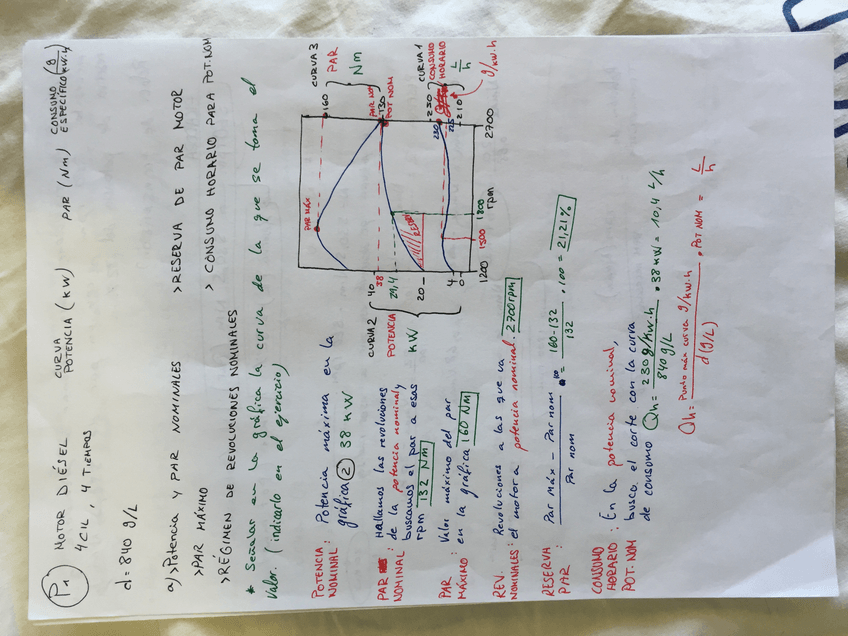 P1 MOTOR DIÉSEL CURVA POTENCIA (KW) PAR (Nm) CONSUMO ESPECÍFICO (g/kW·h)
4 CIL, 4 TIEMPOS
d = 840 g/L
a) > Potencia y PAR NOMINALES > RESERVA DE PAR MOTOR
> PAR MÁXIMO > CONSUMO HORARIO PARA POT. NOM
> RÉGIMEN DE REVOLUCIONES NOMINALES
* Señalar en la gráfica la curva de la que se toma el
valor. (indicarlo en el ejercicio)
POTENCIA NOMINAL: Potencia máxima en la
gráfica 2 38 KW
PAR NOMINAL: Hallamos las revoluciones
de la potencia nominal y
buscamos el par a esas
rpm 132 NM
PAR MÁXIMO: Valor máximo del par
en la gráfica 160 NM
REV. NOMINALES: Revoluciones a las que va
el motor a potencia nominal. 2700 rpm
RESERVA PAR: Par máx - Par nom / Par nom · 100 = 160-132 / 132 · 100 = 21,21%
CONSUMO HORARIO POT. NOM: En la potencia nominal,
busco el corte con la curva
de consumo Qh = 230 g/kW·h / 840 g/L · 38 KW = 10,4 L/h
Qh = Punto máx curva g/kW·h / d (g/L) · POT. NOM = L/h
CURVA 3
PAR
Nm
160
130
PAR MÁX
PAR NO
POT NOM
CURVA 2
POTENCIA
KW
40
38
29,4
20
4
0
CURVA 1
CONSUMO
HORARIO
L/h
g/kW·h
230
230
225
210
1200
1500
1800
rpm
2700